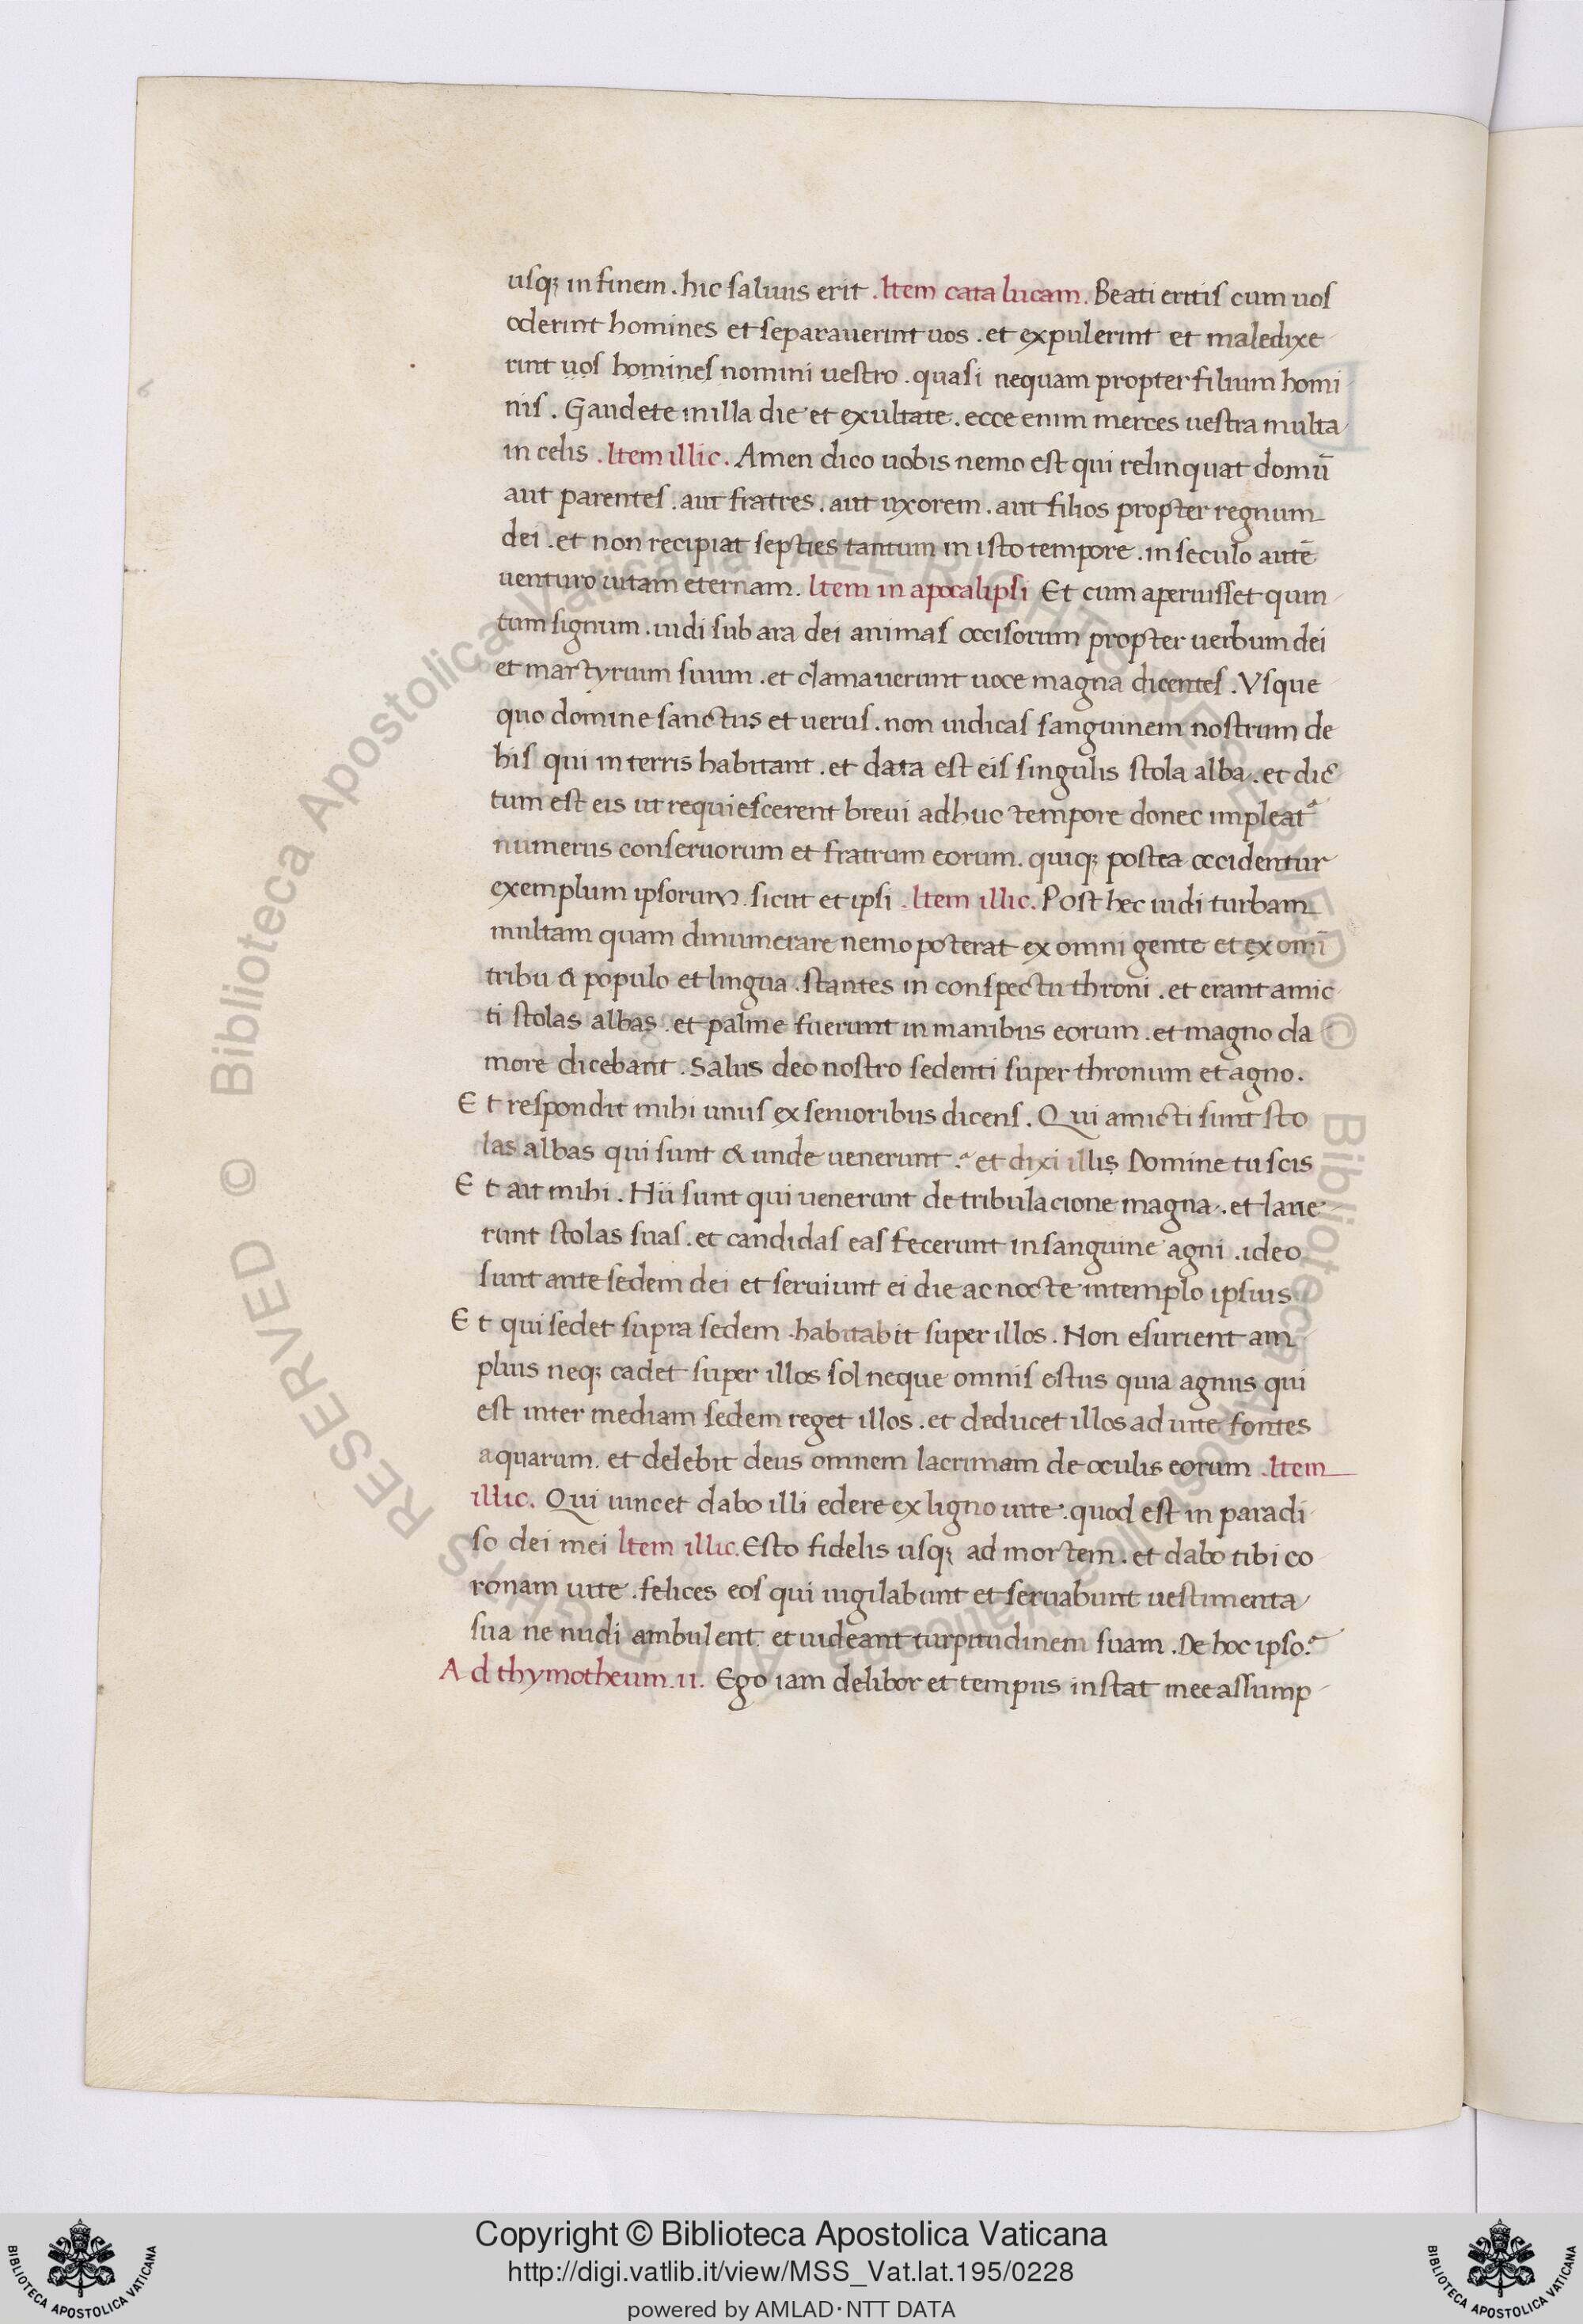 usq; in finem. hic saluus erit. Item cata lucam. Beati eritis cum uos
oderint homines et separauerint uos. et expulerint et maledixe
rint uos homines nomini uestro. quasi nequam propter filium homi
nis. Gaudete in illa die et exultate. ecce enim merces uestra multa
in celis. Item illic. Amen dico uobis nemo est qui relinquat domū
aut parentes. aut fratres. aut uxorem. aut filios propter regnum
dei. et non recipiat septies tantum in isto tempore. in seculo autē
uenturo uitam eternam. Item in apocalipsi Et cum aperuisset quin
tum signum. uidi sub ara dei animas occisorum propter uerbum dei
et martyrium suum. et clamauerunt uoce magna dicentes. Vsque
quo domine sanctus et uerus. non iudicas sanguinem nostrum de
his qui in terris habitant. et data est eis singulis stola alba. et dic
tum est eis ut requiescerent breui adhuc tempore donec impleat᷑
numerus conseruorum et fratrum eorum. quiq; postea occidentur
exemplum ipsorum. sicut et ipsi. Item illic. Post hec uidi turbam
multam quam dinumerare nemo poterat ex omni gente et ex omī
tribu & populo et lingua. stantes in conspectu throni. et erant amic
ti stolas albas. et palme fuerunt in manibus eorum. et magno cla
more dicebant. Salus deo nostro sedenti super thronum et agno.
Et respondit mihi unus ex senioribus dicens. Qui amicti sunt sto
las albas qui sunt & unde uenerunt? et dixi illis Domine tu scis
Et ait mihi. Hii sunt qui uenerunt de tribulacione magna. et laue
runt stolas suas. et candidas eas fecerunt in sanguine agni. ideo
sunt ante sedem dei et seruiunt ei die ac nocte in templo ipsius
Et qui sedet supra sedem. habitabit super illos. Non esurient am
plius neq; cadet super illos sol neque omnis estus quia agnus qui
est inter mediam sedem reget illos. et deducet illos ad uite fontes
aquarum. et delebit deus omnem lacrimam de oculis eorum. Item
illic. Qui uincet dabo illi edere ex ligno uite. quod est in paradi
so dei mei Item illic. Esto fidelis usq; ad mortem. et dabo tibi co
ronam uite. felices eos qui uigilabunt et seruabunt uestimenta
sua ne nudi ambulent. et uideant turpitudinem suam. De hoc ipso?
Ad thymotheum. II. Ego iam delibor et tempus instat mee assump
© Biblioteca Apostolica Vaticana ALL RIGHTS RESERVED
© Biblioteca Apostolica Vaticana ALL RIGHTS RESERVED
BIBLIOTECA APOSTOLICA VATICANA
Copyright © Biblioteca Apostolica Vaticana
http://digi.vatlib.it/view/MSS_Vat.lat.195/0228
powered by AMLAD·NTT DATA
BIBLIOTECA APOSTOLICA VATICANA